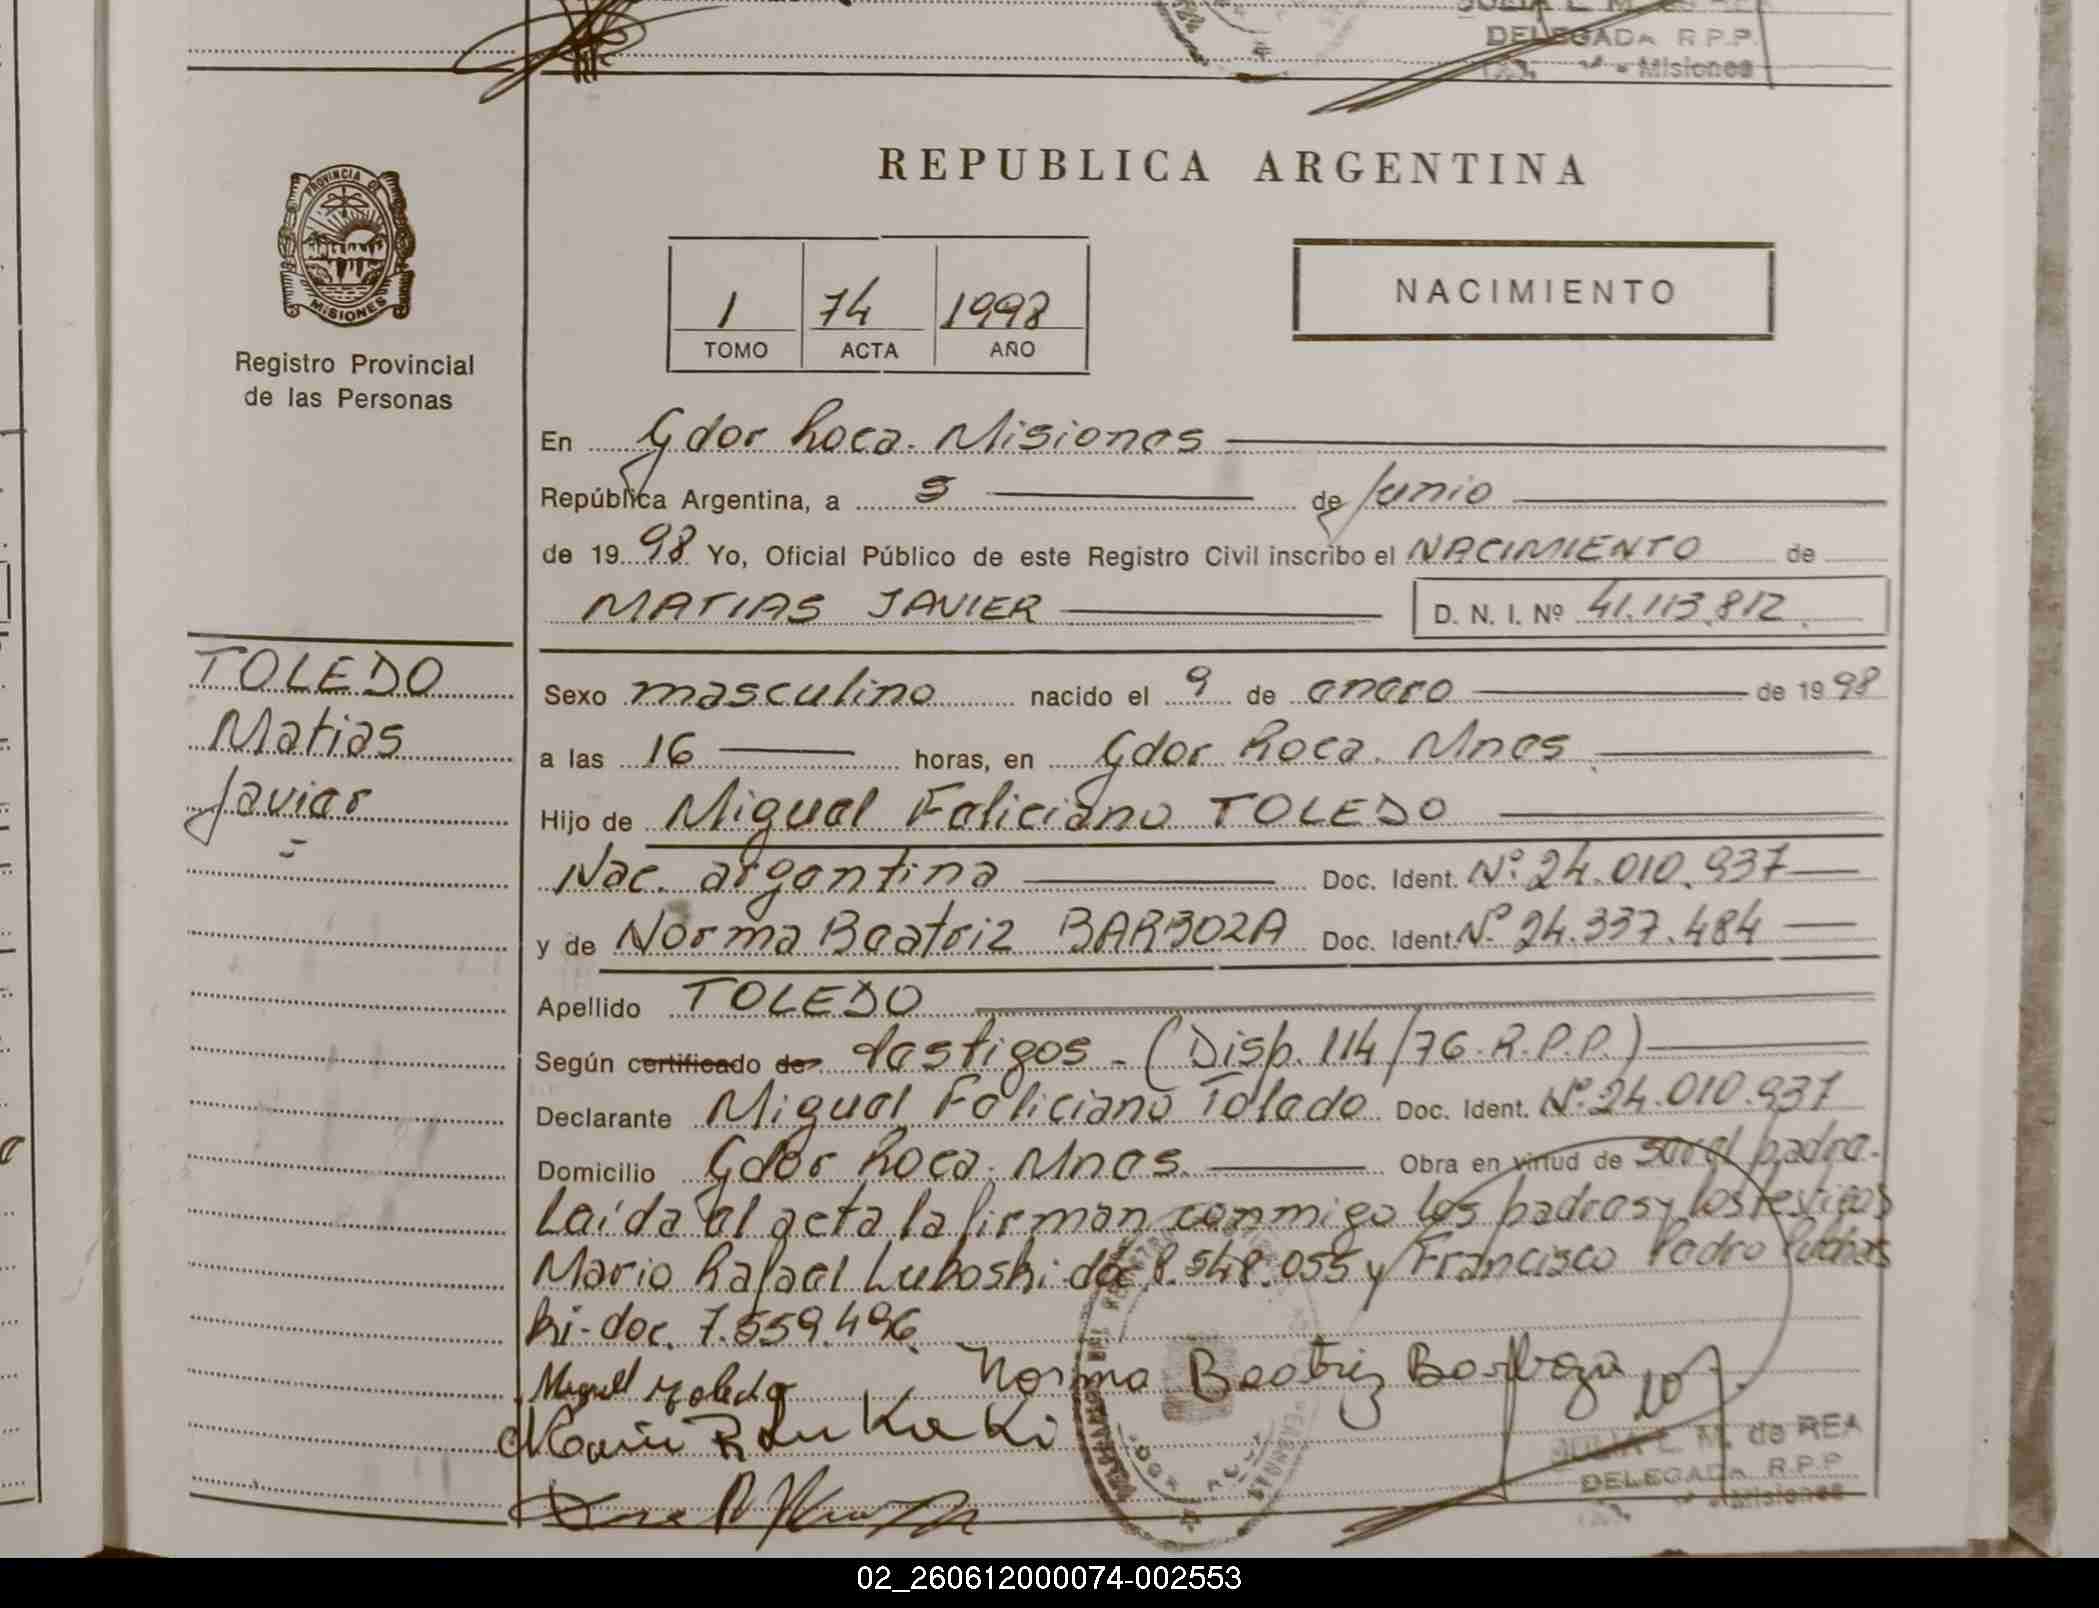 DELEGADA R.P.P.
Misiones
PROVINCIA DE
MISIONES
Registro Provincial
de las Personas
REPUBLICA ARGENTINA
1 74 1998
TOMO ACTA AÑO
NACIMIENTO
En Gdor Roca. Misiones
República Argentina, a 5 de Junio
de 1998 Yo, Oficial Público de este Registro Civil inscribo el NACIMIENTO de
MATIAS JAVIER D. N. I. Nº 41.113.812
TOLEDO
Matias
Javier
Sexo masculino nacido el 9 de enero de 1998
a las 16 horas, en Gdor Roca. Mnes
Hijo de Miguel Feliciano TOLEDO
Nac. argentina Doc. Ident. Nº 24.010.937
y de Norma Beatriz BARBOZA Doc. Ident. Nº 24.337.484
Apellido TOLEDO
Según certificado de testigos - (Disp. 114/76-R.P.P.)
Declarante Miguel Feliciano Toledo Doc. Ident. Nº 24.010.937
Domicilio Gdor Roca. Mnes. Obra en virtud de ser el padre.
Leída el acta la firman conmigo los padres y los testigos
Mario Rafael Lukoski doc 8.548.055 y Francisco Pedro
ki-doc. 7.559.496
Miguel Toledo
Norma Beatriz Barboza
JULIA L. M. de REA
DELEGADA R.P.P
Misiones
02_260612000074-002553